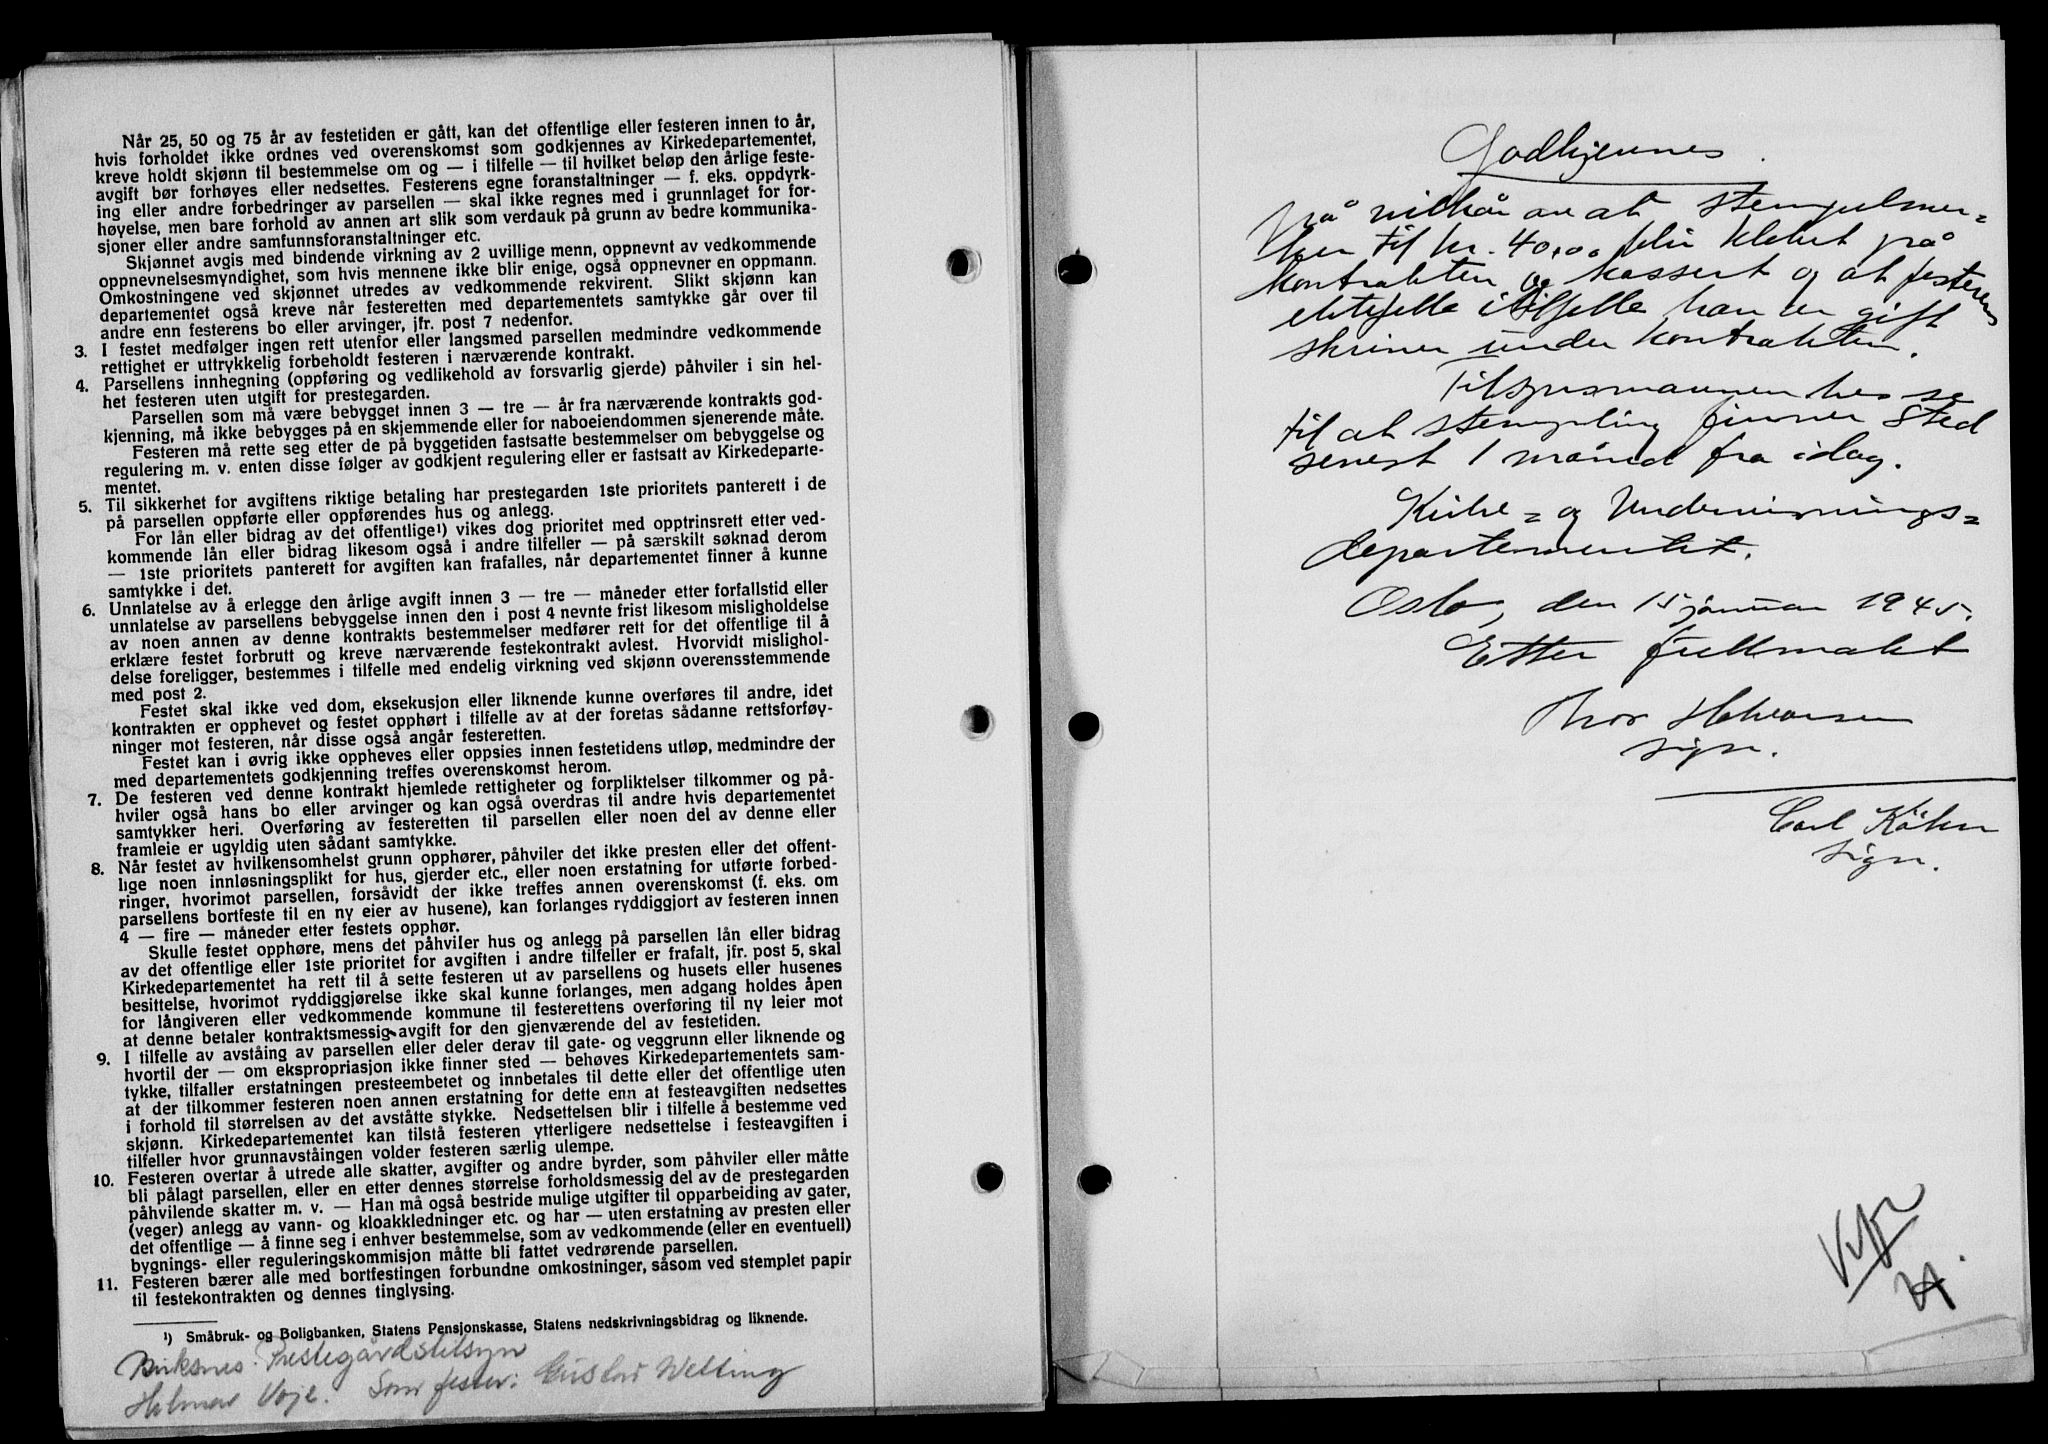 Når 25, 50 og 75 år av festetiden er gått, kan det offentlige eller festeren innen to år,
hvis forholdet ikke ordnes ved overenskomst som godkjennes av Kirkedepartementet,
kreve holdt skjønn til bestemmelse om og — i tilfelle — til hvilket beløp den årlige feste-
avgift bør forhøyes eller nedsettes. Festerens egne foranstaltninger — f. eks. oppdyrk-
ing eller andre forbedringer av parsellen — skal ikke regnes med i grunnlaget for for-
høyelse, men bare forhold av annen art slik som verdauk på grunn av bedre kommunika-
sjoner eller andre samfunnsforanstaltninger etc.
Skjønnet avgis med bindende virkning av 2 uvillige menn, oppnevnt av vedkommende
oppnevnelsesmyndighet, som hvis mennene ikke blir enige, også oppnevner en oppmann.
Omkostningene ved skjønnet utredes av vedkommende rekvirent. Slikt skjønn kan
departementet også kreve når festeretten med departementets samtykke går over til
andre enn festerens bo eller arvinger, jfr. post 7 nedenfor.
3. I festet medfølger ingen rett utenfor eller langsmed parsellen medmindre vedkommende
rettighet er uttrykkelig forbeholdt festeren i nærværende kontrakt.
4. Parsellens innhegning (oppføring og vedlikehold av forsvarlig gjerde) påhviler i sin hel-
het festeren uten utgift for prestegarden.
Parsellen som må være bebygget innen 3 — tre — år fra nærværende kontrakts god-
kjenning, må ikke bebygges på en skjemmende eller for naboeiendommen sjenerende måte.
Festeren må rette seg etter de på byggetiden fastsatte bestemmelser om bebyggelse og
regulering m. v. enten disse følger av godkjent regulering eller er fastsatt av Kirkedeparte-
mentet.
5. Til sikkerhet for avgiftens riktige betaling har prestegarden 1ste prioritets panterett i de
på parsellen oppførte eller oppførendes hus og anlegg.
For lån eller bidrag av det offentlige¹) vikes dog prioritet med opptrinsrett etter ved-
kommende lån eller bidrag likesom også i andre tilfeller — på særskilt søknad derom
— 1ste prioritets panterett for avgiften kan frafalles, når departementet finner å kunne
samtykke i det.
6. Unnlatelse av å erlegge den årlige avgift innen 3 — tre — måneder etter forfallstid eller
unnlatelse av parsellens bebyggelse innen den i post 4 nevnte frist likesom misligholdelse
av noen annen av denne kontrakts bestemmelser medfører rett for det offentlige til å
erklære festet forbrutt og kreve nærværende festekontrakt avlest. Hvorvidt mislighol-
delse foreligger, bestemmes i tilfelle med endelig virkning ved skjønn overensstemmende
med post 2.
Festet skal ikke ved dom, eksekusjon eller liknende kunne overføres til andre, idet
kontrakten er opphevet og festet opphørt i tilfelle av at der foretas sådanne rettsforføy-
ninger mot festeren, når disse også angår festeretten.
Festet kan i øvrig ikke oppheves eller oppsies innen festetidens utløp, medmindre der
med departementets godkjenning treffes overenskomst herom.
7. De festeren ved denne kontrakt hjemlede rettigheter og forpliktelser tilkommer og på-
hviler også hans bo eller arvinger og kan også overdras til andre hvis departementet
samtykker heri. Overføring av festeretten til parsellen eller noen del av denne eller
framleie er ugyldig uten sådant samtykke.
8. Når festet av hvilkensomhelst grunn opphører, påhviler det ikke presten eller det offent-
lige noen innløsningsplikt for hus, gjerder etc., eller noen erstatning for utførte forbed-
ringer, hvorimot parsellen, forsåvidt der ikke treffes annen overenskomst (f. eks. om
parsellens bortfeste til en ny eier av husene), kan forlanges ryddiggjort av festeren innen
4 — fire — måneder etter festets opphør.
Skulle festet opphøre, mens det påhviler hus og anlegg på parsellen lån eller bidrag
av det offentlige eller 1ste prioritet for avgiften i andre tilfeller er frafalt, jfr. post 5, skal
Kirkedepartementet ha rett til å sette festeren ut av parsellens og husets eller husenes
besittelse, hvorimot ryddiggjørelse ikke skal kunne forlanges, men adgang holdes åpen
for långiveren eller vedkommende kommune til festerettens overføring til ny leier mot
at denne betaler kontraktsmessig avgift for den gjenværende del av festetiden.
9. I tilfelle av avståing av parsellen eller deler derav til gate- og veggrunn eller liknende og
hvortil der — om ekspropriasjon ikke finner sted — behøves Kirkedepartementets sam-
tykke, tilfaller erstatningen presteembetet og innbetales til dette eller det offentlige uten
at der tilkommer festeren noen annen erstatning for dette enn at festeavgiften nedsettes
i forhold til størrelsen av det avståtte stykke. Nedsettelsen blir i tilfelle å bestemme ved
skjønn. Kirkedepartementet kan tilstå festeren ytterligere nedsettelse i festeavgiften i
tilfeller hvor grunnavståingen volder festeren særlig ulempe.
10. Festeren overtar å utrede alle skatter, avgifter og andre byrder, som påhviler eller måtte
bli pålagt parsellen, eller en etter dennes størrelse forholdsmessig del av de prestegarden
påhvilende skatter m. v. — Han må også bestride mulige utgifter til opparbeiding av gater,
(veger) anlegg av vann- og kloakkledninger etc. og har — uten erstatning av presten eller
det offentlige — å finne seg i enhver bestemmelse, som av vedkommende (eller en eventuell)
bygnings- eller reguleringskommisjon måtte bli fattet vedrørende parsellen.
11. Festeren bærer alle med bortfestingen forbundne omkostninger, såsom ved stemplet papir
til festekontrakten og dennes tinglysing.
¹) Småbruk- og Boligbanken, Statens Pensjonskasse, Statens nedskrivningsbidrag og liknende.
Birksnes Prestegårdstilsyn
Halmar Voje. Som fester: Gustav Welting
Godkjennes
på vilkår av at stempelmer=
ker til kr. 40,00 blir klebet på
kontrakten og kassert og at festerens
ektefelle i tilfelle han er gift
skriver under kontrakten.
Tilsynsmannen bes se
til at stempling finner sted
senest 1 måned fra idag.
Kirke= og Undervisnings=
departementet.
Oslo, den 15 januar 1945.
Etter fullmakt
Thor Håkonsen
sign.
Carl Køhn
sign.